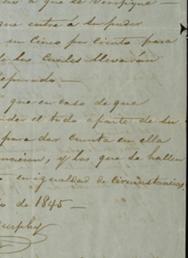 á que se verifique —
que entra á su poder
un cinco por ciento para
de los cuales llevarán
separado —
que en caso de que
el todo ó parte de su
para dar cuenta en ella
y los que se hallen
en igualdad de circunstancias
de 1845 —